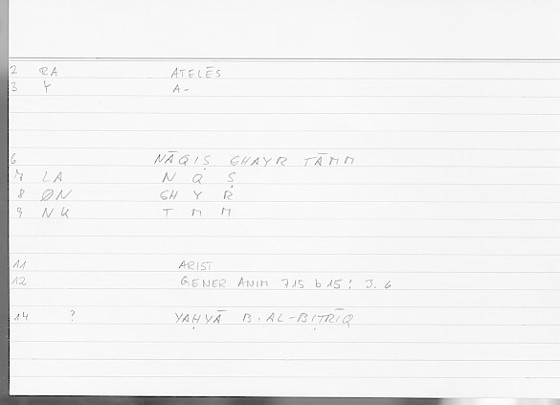 2 RA ATELĒS
3 Y A-
6 NĀQIṢ GHAYR TĀMM
7 LA N Q Ṣ
8 ØN GH Y R
9 NK T M M
11 ARIST
12 GENER ANIM 715 b 15; J. 6
14 ? YAḤYĀ B. AL-BIṬRĪQ